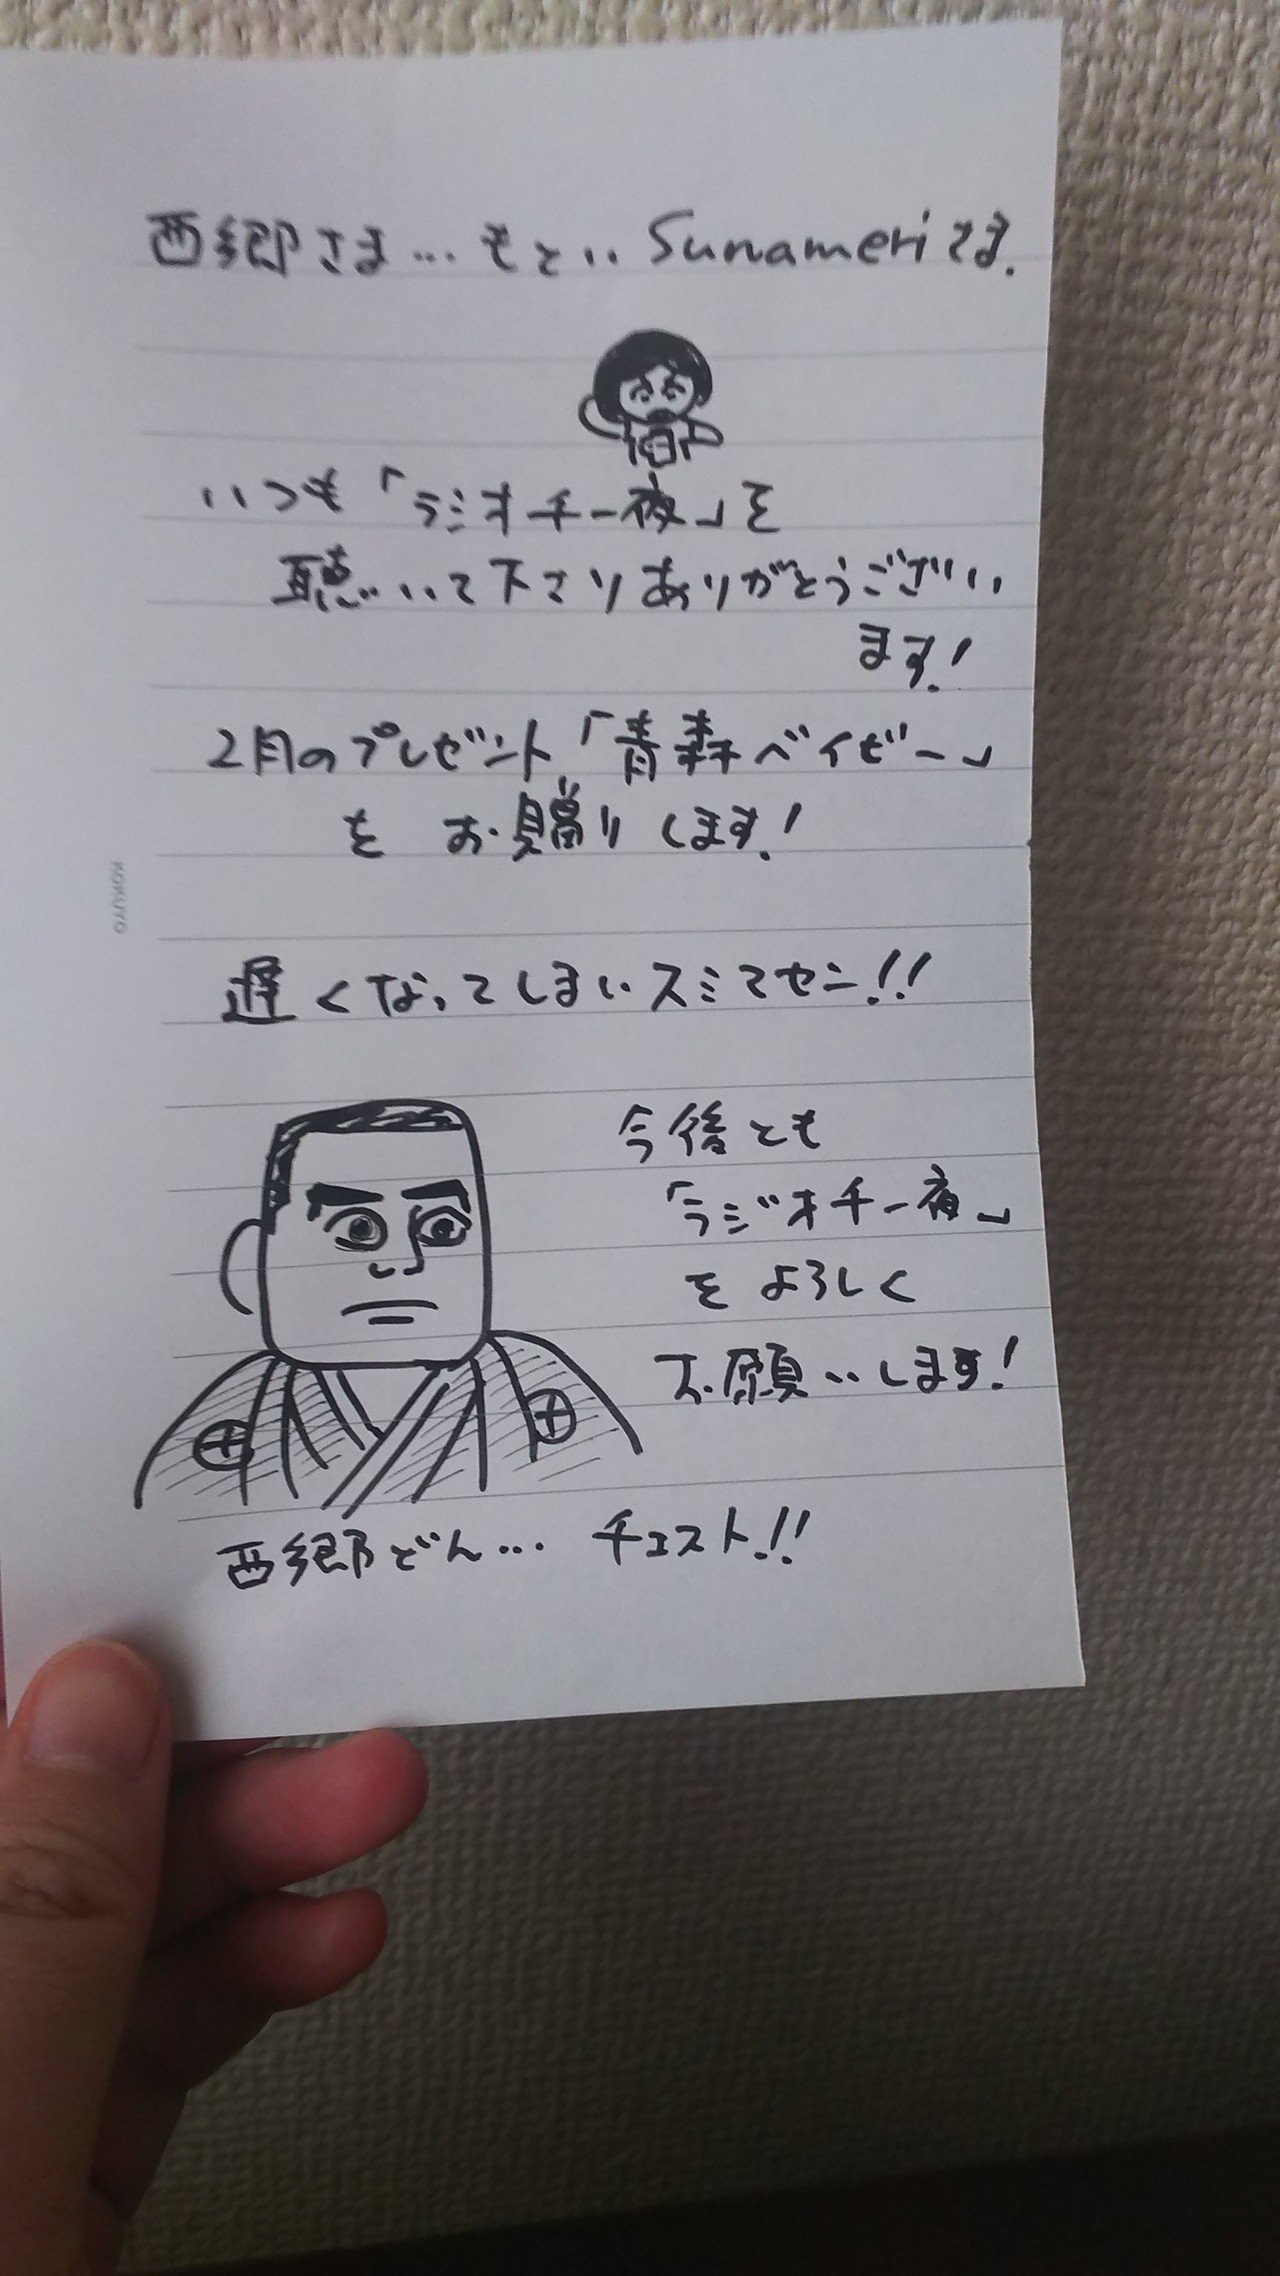 西郷さま…もとい Sunameriさま.
いつも「ラジオチー夜」を
聴いて下さりありがとうござい
ます!
2月のプレゼント「青森ベイビー」
を お贈りします!
遅くなってしまいスミマセン!!
今後とも
「ラジオチー夜」
を よろしく
お願いします!
西郷どん… チェスト!!
KOKUYO